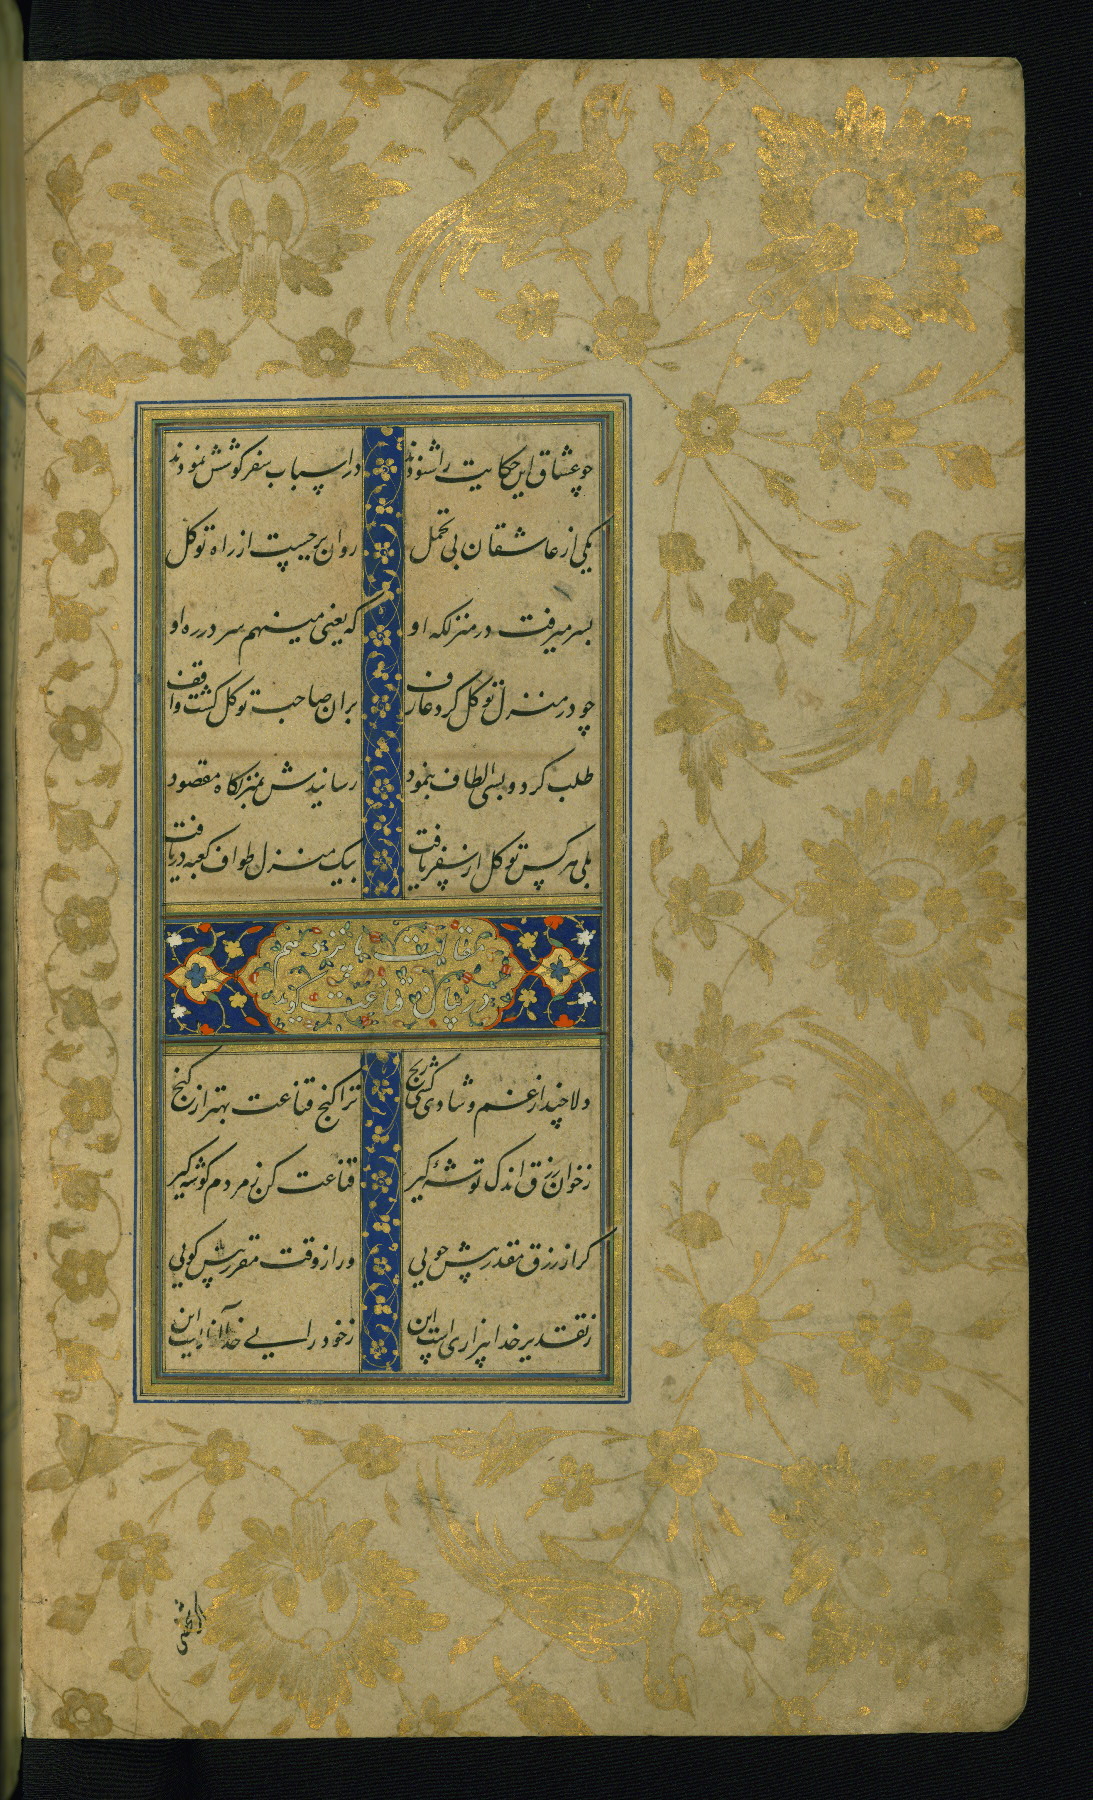 چو عشاق این حکایت را شنودند در اسباب سفر کوشش نمودند
یکی از عاشقان بی تحمل روان برجست از راه توکل
بسر میرفت در منزلکه او که یعنی مینهم سر در ره او
چو در منزل توکل کرد عارف بران صاحب توکل کشت واقف
طلب کرد و بسی الطاف بنمود رسانیدش بمنزلکاه مقصود
بلی هر کس توکل از سفر یافت بیک منزل طواف کعبه دریافت
مقالت پانزدهم
در بیان قناعت کوید
دلا چند از غم و شادی کشی رنج ترا کنج قناعت بهتر از کنج
ز خوان رزق اندک توشهٔ کیر قناعت کن ز مردم کوشه کیر
کر از رزق مقدر بیش جویی ور از وقت مقرر پیش کویی
ز تقدیر خدا بیزاریست این ز خود رایی خدا